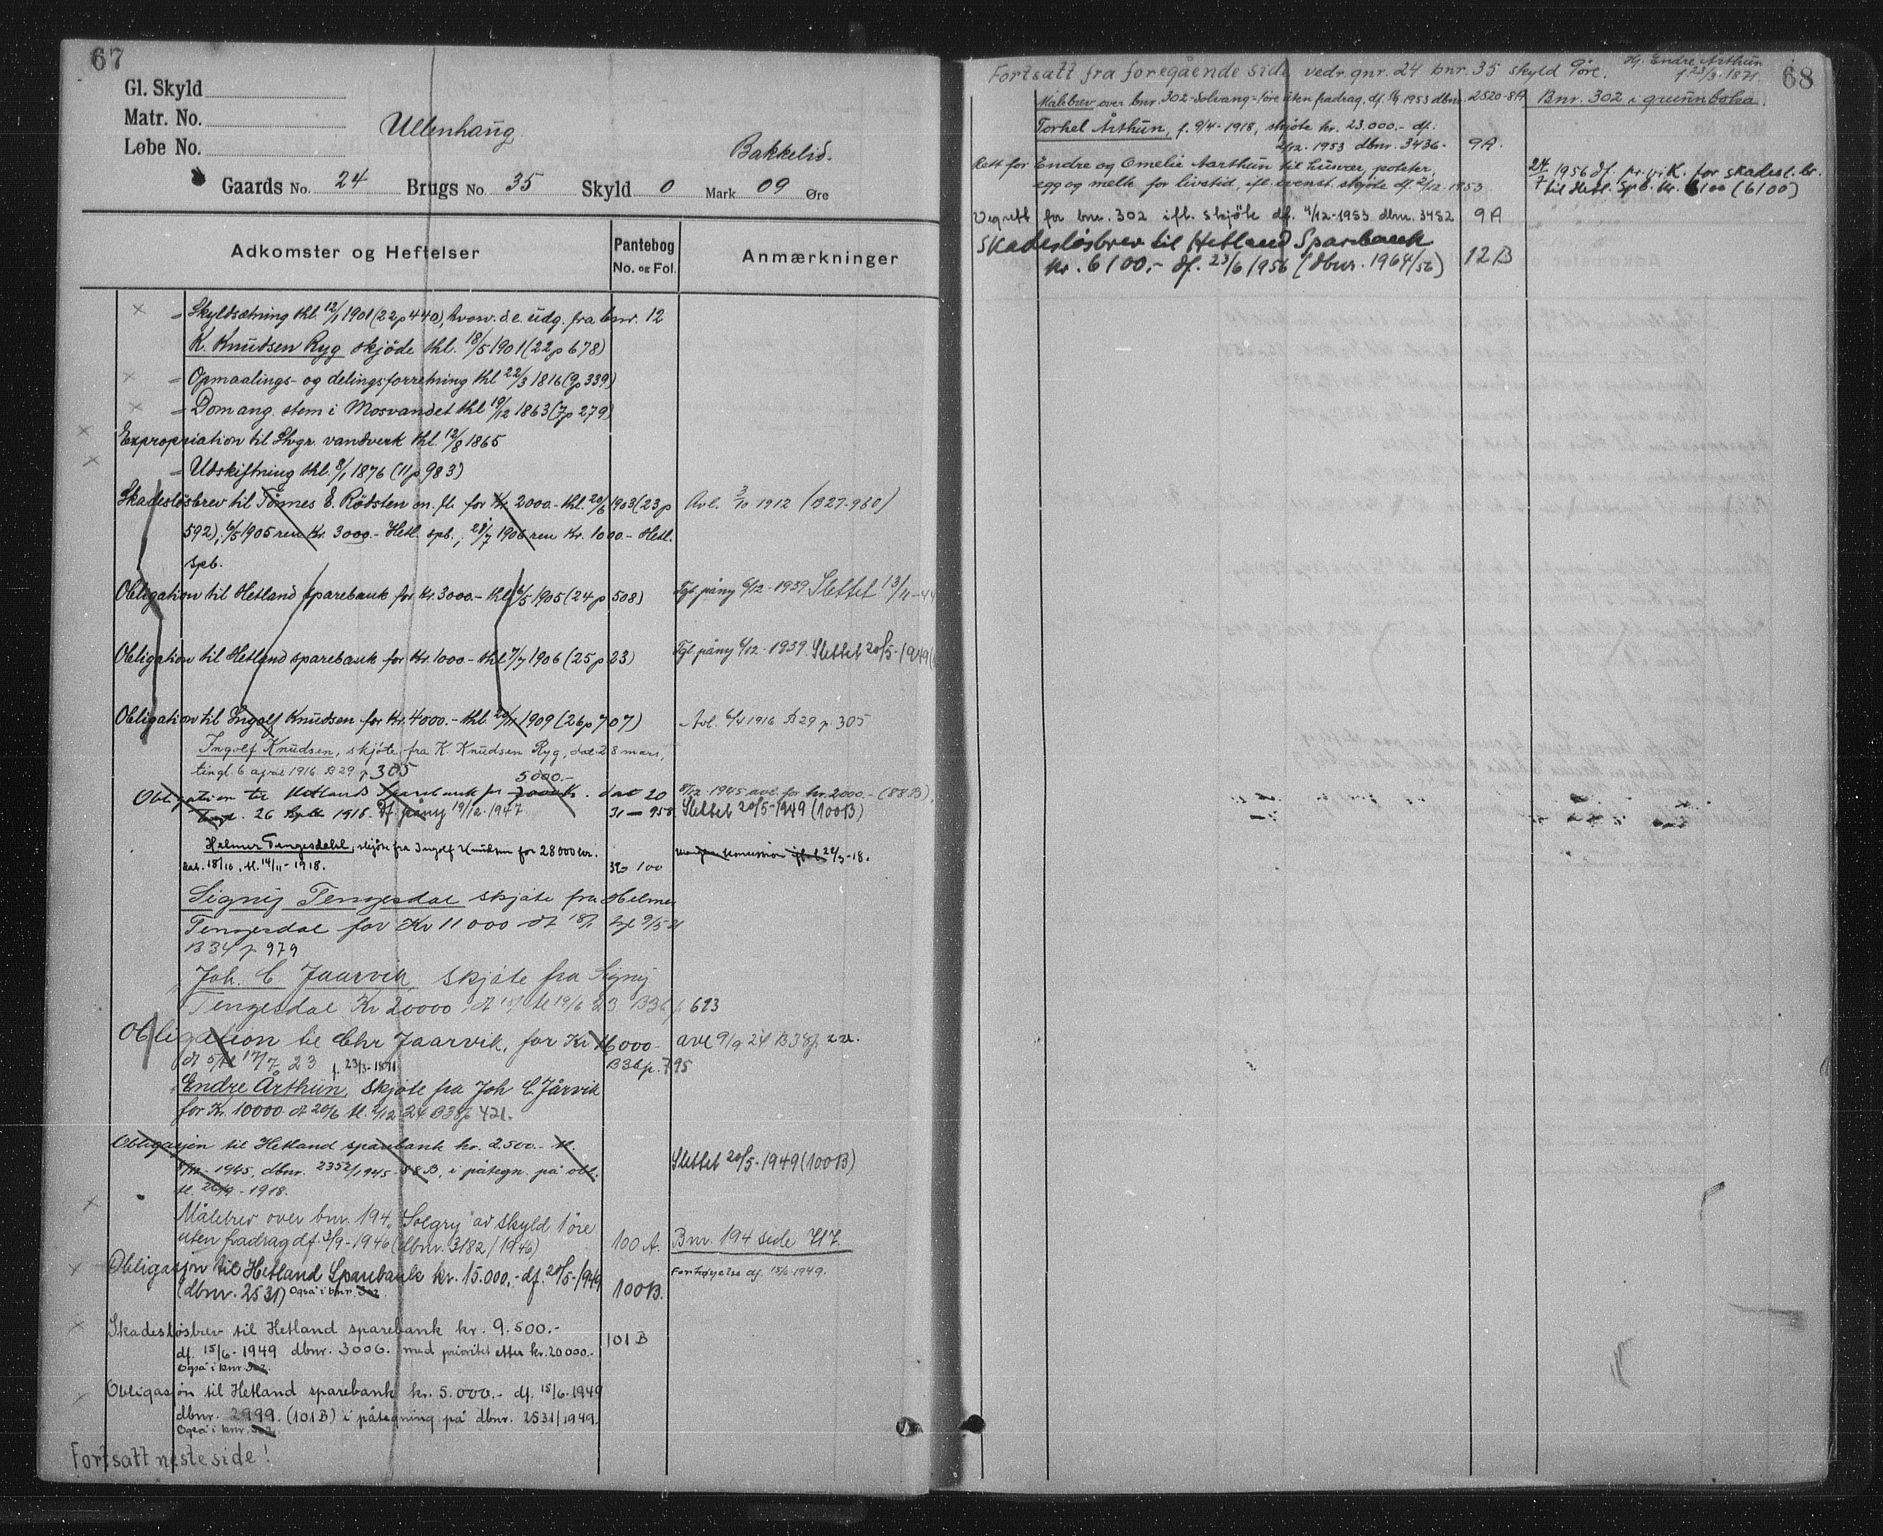 67
Gl. Skyld
Matr. No.
Løbe No.
Ullenhaug
Bakkelid.
Gaards No. 24 Brugs No. 35 Skyld 0 Mark 09 Øre
Adkomster og Heftelser
Pantebog
No. og Fol.
Anmærkninger
Skyldsætning thl. 12/1 1901 (22 p 440), hvorv. d.e. udg. fra bnr. 12
K. Knudsen Ryg skjøde thl. 18/5 1901 (22 p 678)
Opmaalings- og delingsforretning thl 22/3 1816 (9 p 339)
Dom ang. stem i Mosvandet thl 19/12 1863 (7 p 279)
Expropriation til Stvgr. vandverk thl. 12/8 1865
Udskiftning thl. 8/1 1876 (11 p 983)
Skadesløsbrev til Tønnes E. Rödsten m. fl. for Kr 2000.- thl. 20/6 1903 (23 p Avl. 3/10 1912 (B27-980)
592), 6/5 1905 ren Kr. 3000.- Hetl. spb., 28/7 1906 ren Kr. 1000.- Hetl.
spb.
Obligation til Hetland sparebank for Kr. 3000.- thl. 6/5 1905 (24 p 508) Tgl. påny 6/12-1939 Slettet 13/11-44
Obligation til Hetland sparebank for Kr. 1000- thl 7/7 1906 (25 p 23) Tgl. påny 6/12-1939. Slettet 20/5-1949
Obligation til Ingolf Knudsen for Kr. 4000.- thl. 20/11 1909 (26 p 707) Avl. 6/4 1916 B29 p. 305
Ingolf Knudsen, skjøte fra K. Knudsen Ryg, dat. 28 mars,
tingl. 6 april 1916. B 29 p 305
5000.-
Obligation til Hetland Sparebank for dat 20 8/12 1945 avl. for kr. 2000.- (88B).
Tingl. 26 1918. Df påny 19/12-1947 31 - 958 Slettet 20/5-1949 (100B)
Helmer Tengesdahl, skjøte fra Ingolf Knudsen for 28000 kr.
dat. 18/10, tl. 14/11-1918. 32- 100
Signy Tengesdal skjøte fra Helmer
Tengesdal for Kr 11000 dt 18/1 tgl 9/5-21
B 34 p 979
Joh. C Jaarvik skjøte fra Signy
Tengesdal Kr 20000 dt tl 19/6 23 B36 p 693
Obligation til Chr Jaarvik, for Kr 16000- avl 9/9 24 B38 p 22.
dt 5/ tl 17/7 23 f. 23/3-1871 B36 p. 795
Endre Årthun, skjøte fra Joh C. Jårvik
for Kr. 10000 dt 20/6 tl. 2/12 24 B38 p 421.
Obligasjon til Hetland sparebank kr. 2.500.- tl.
8/12-1945, dbnr. 2352/1945-88B, i påtegn. på obl. Slettet 20/5-1949 (100B)
tl. 26/9-1918.
Målebrev over bnr. 194 "Solgry" av skyld 1 øre
uten fradrag df. 3/9-1946 (dbnr. 3182/1946) 100 A. Bnr. 194 side 717
Obligasjon til Hetland Sparebank kr. 15.000.- df. 20/5-1949 Forhøyelse df. 15/6-1949.
(dbnr. 2531) Også i bnr. 302. 100B.
Skadesløsbrev til Hetland sparebank kr. 9.500.- 101 B
df. 15/6-1949 dbnr. 3006. med prioritet etter kr. 20000.-
Også i bnr 302.
Obligasjon til Hetland sparebank kr. 5.000.- df. 15/6-1949
dbnr. 2999. (101B) i påtegning på dbnr. 2531/1949.
Også i bnr. 302.
Fortsatt neste side!
68
Fortsatt fra foregående side vedr. gnr. 24 bnr. 35 skyld 9 öre. Hj. Endre Arthun
f. 23/3-1871.
Målebrev over bnr. 302-Solvang-1 øre uten fradrag. df. 1953 dbnr. 2520-8A Bnr. 302 i grunnboka.
Torkel Årthun, f. 9/4-1918, skjøte kr. 23.000.- df.
2/12-1953 dbnr. 3436- 9A.
Rett for Endre og Omelie Aarthun til husvær, poteter, 24/7 1956 df. pr.vik. for skadesl.br.
egg og melk for livstid, ifl. evenst. skjøte df. 2/12-1953 til Hetl. Spb. kr. 6100 (6100)
Vegrett for bnr. 302 ifl. skjöte df. 4/12-1953 dbnr. 3452 9A
Skadesløsbrev til Hetland Sparebank
kr. 6100.- df. 23/6 1956 (dbnr. 1964/56) 12B